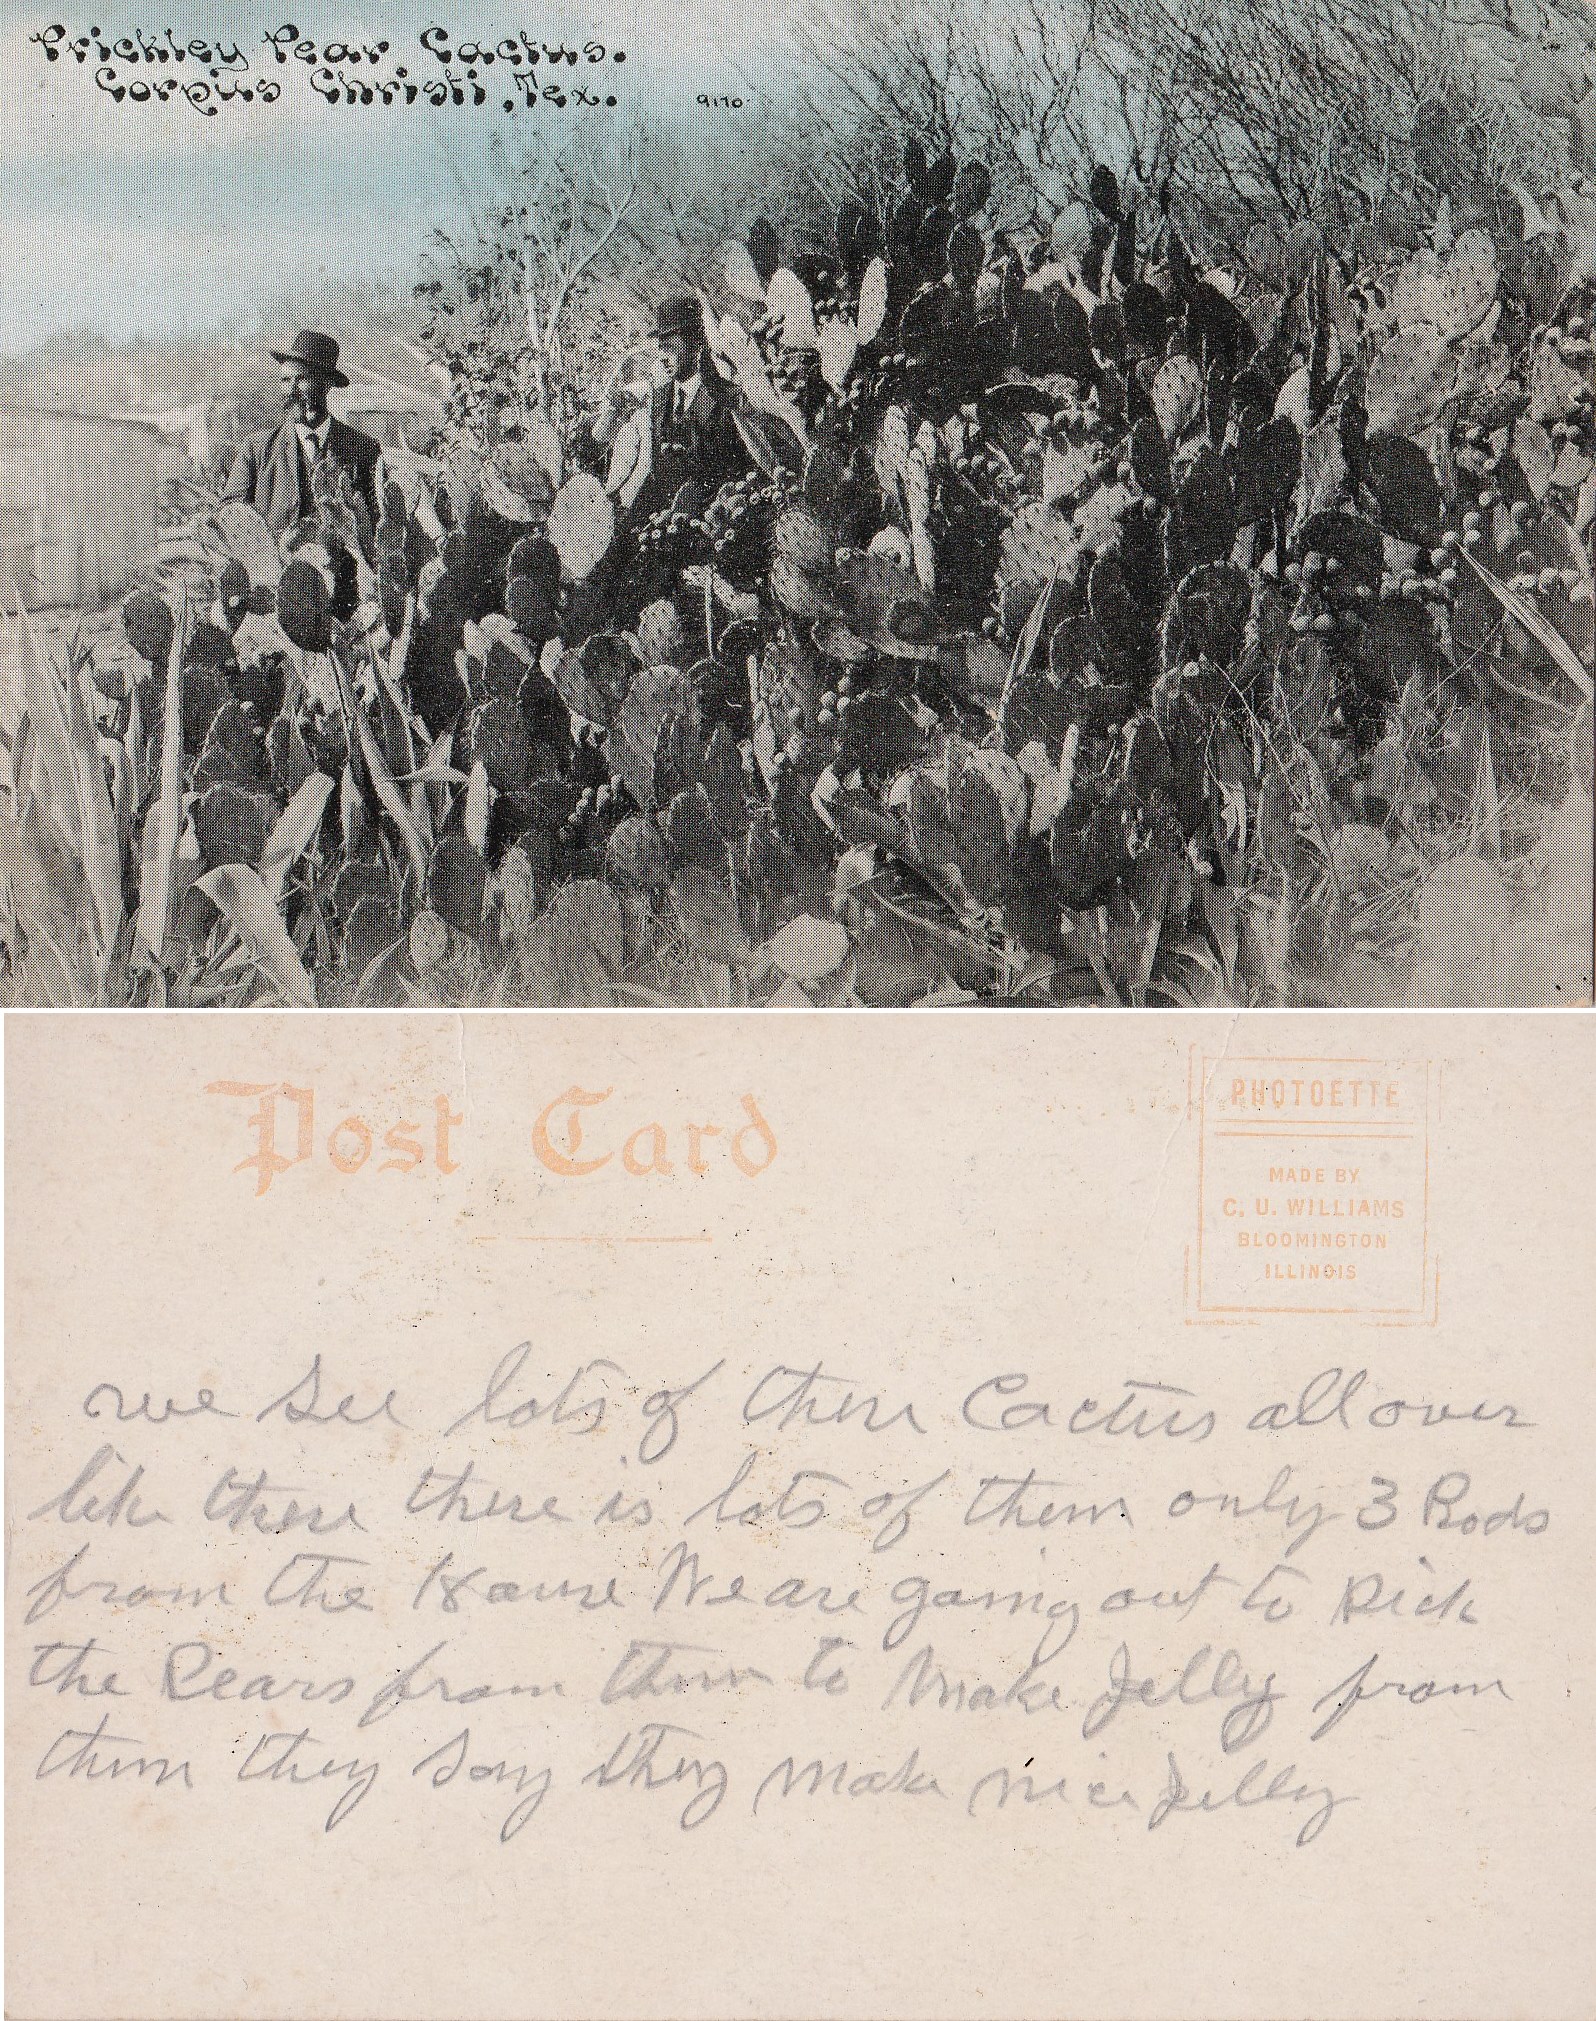 Prickley Pear Cactus.
Corpus Christi, Tex. 9170
Post Card
PHOTOETTE
MADE BY
C. U. WILLIAMS
BLOOMINGTON
ILLINOIS
we see lots of these Cactus all over
like these there is lots of them only 3 Rods
from the House We are going out to Pick
the Pears from them to Make Jelly from
them they say they Make nice Jelly